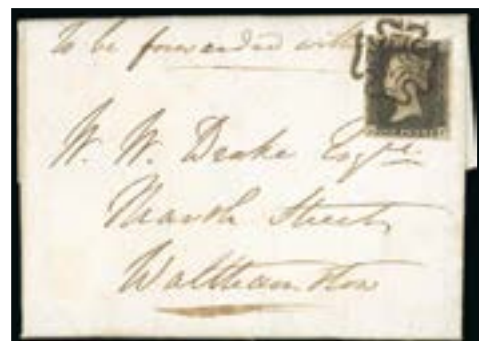 To be forwarded with
W. W. Drake Esqre.
Marsh Street
Walthamstow